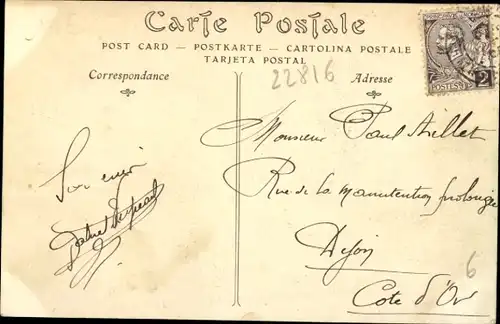 Carte Postale
POST CARD — POSTKARTE — CARTOLINA POSTALE
TARJETA POSTAL
Correspondance
Adresse
22816
POSTES 2
Monsieur Paul
Rue de la Manutention prolongée
Dijon
Cote d'Or
6
Souvenir